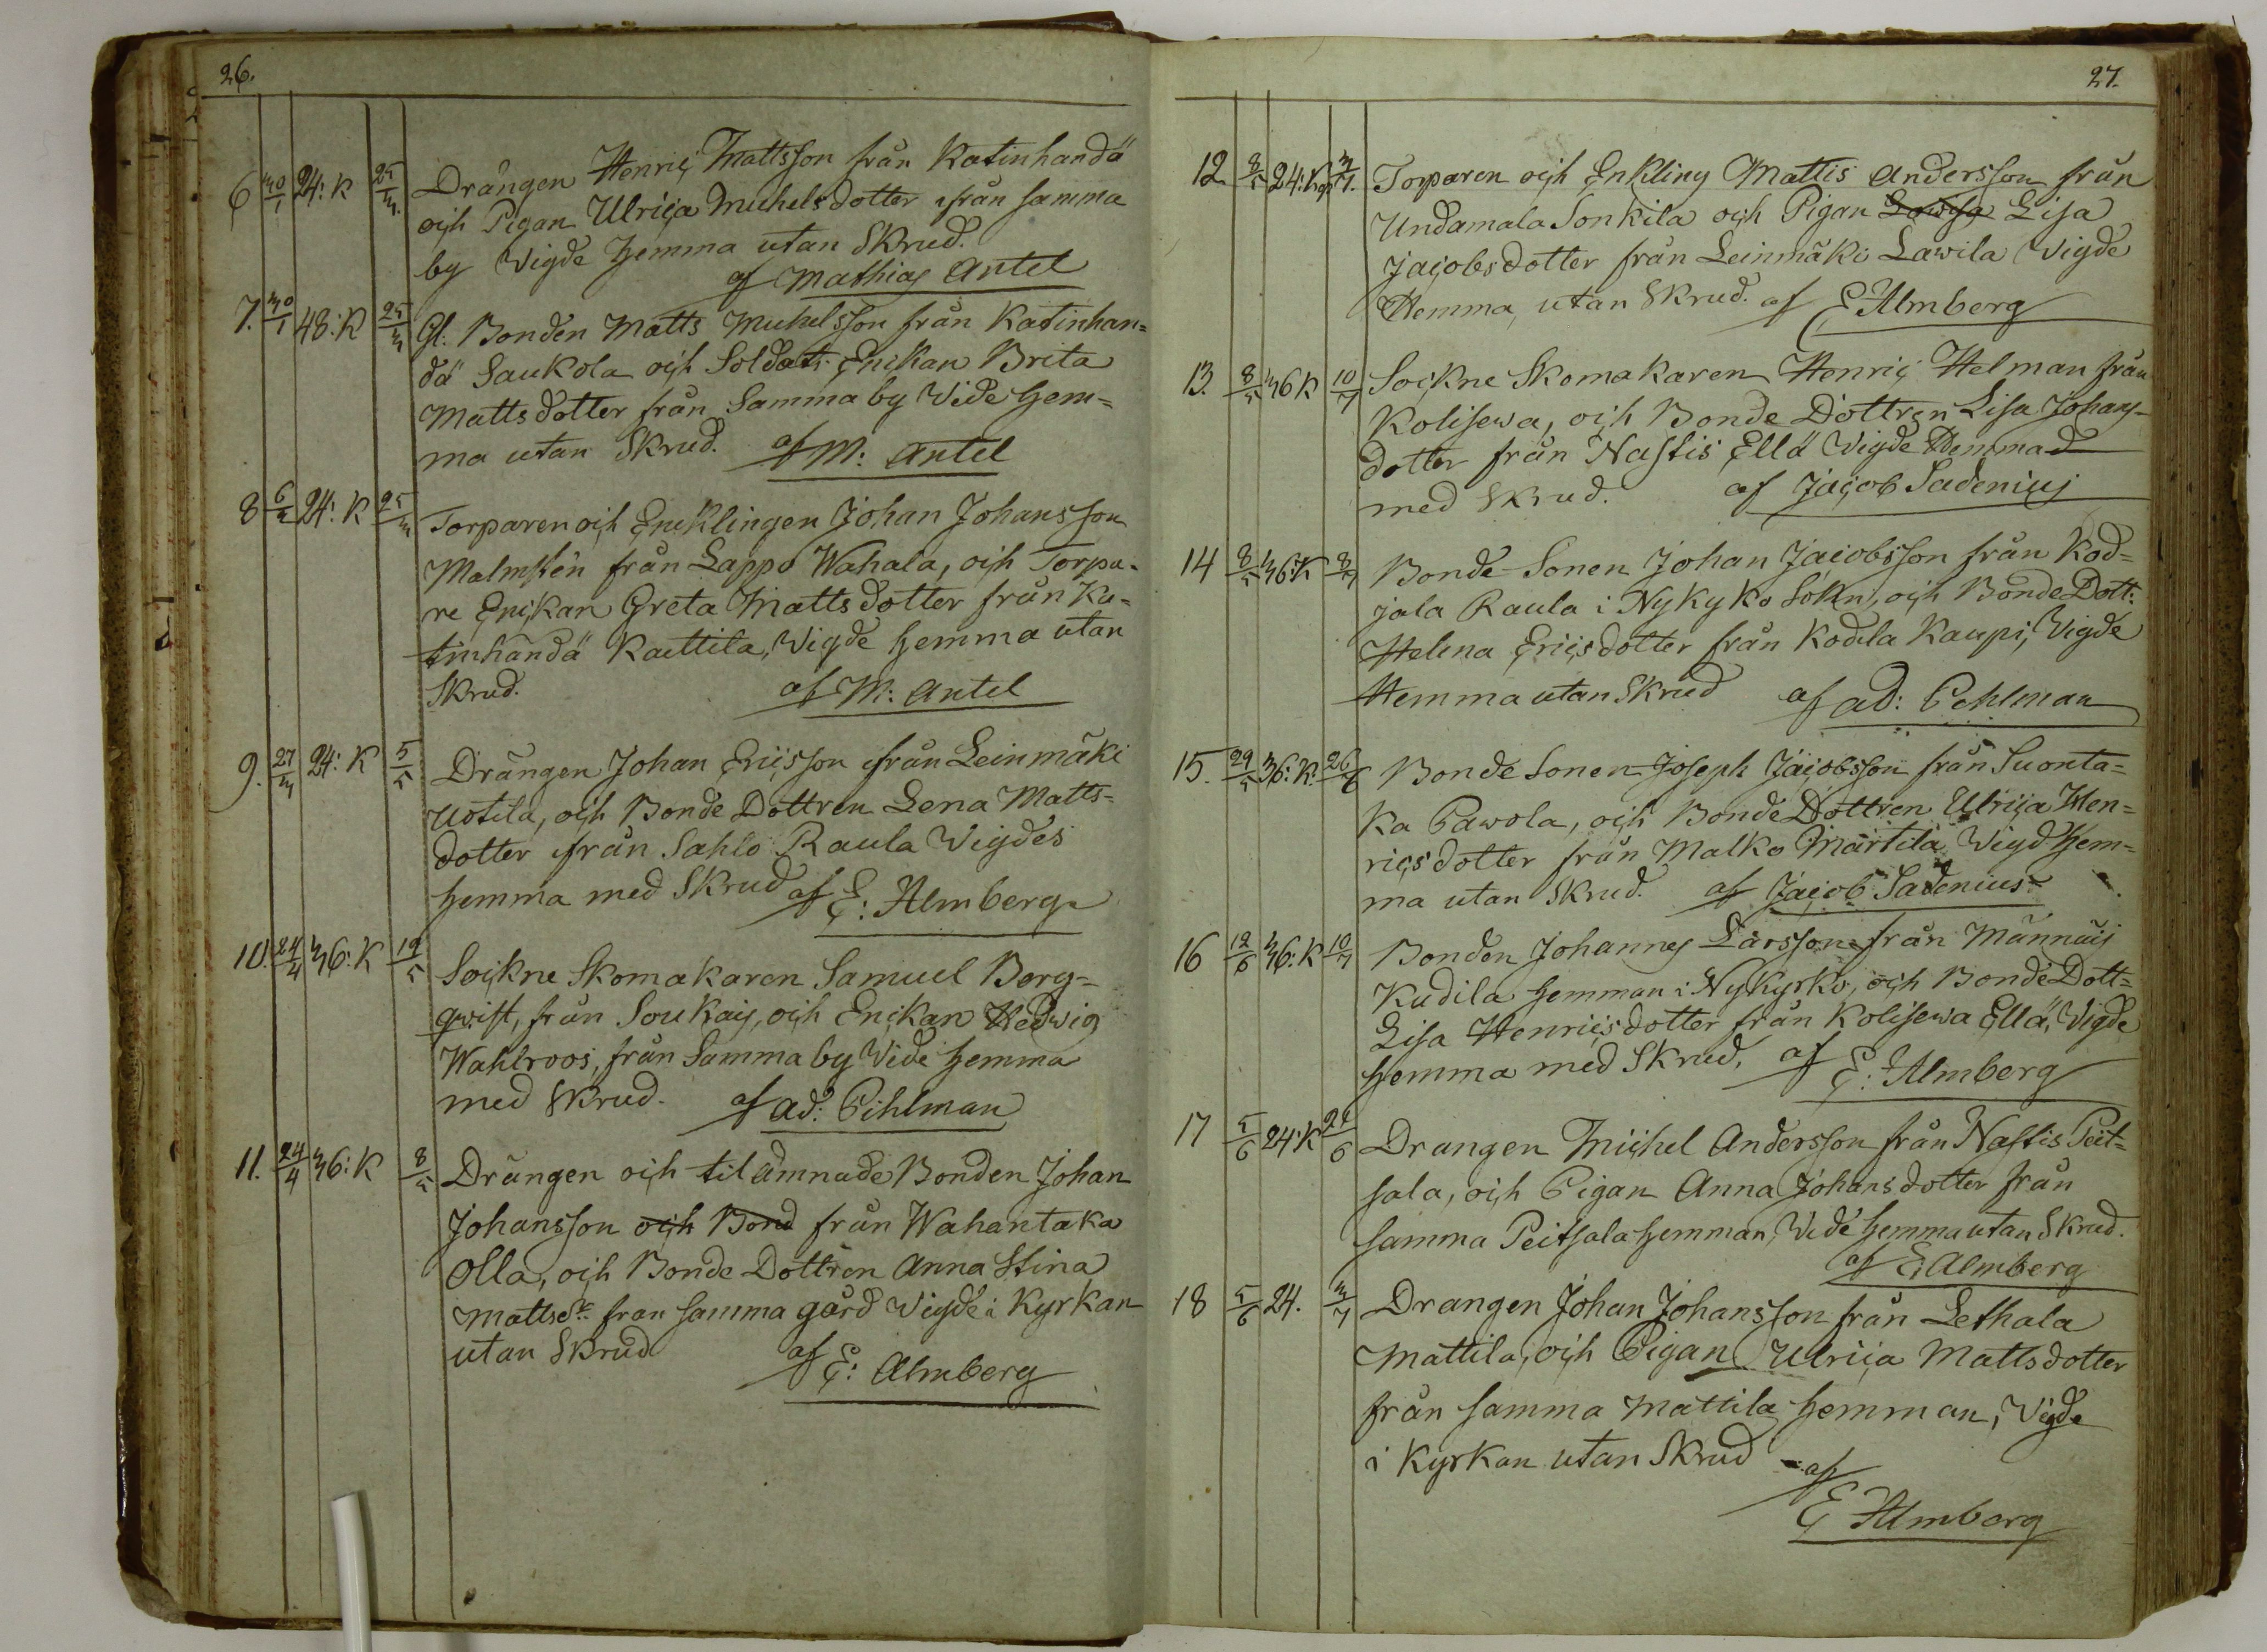 26.
6 30/1 24: K 25/3. Drängen Henric Mattsson från Katinhändä
och Pigan Ulrica Michelsdotter från samma
by Vigde hemma utan Skrud.
af Mathias Antel
7. 30/1 48: K 25/3 Gl. Bonden Matts Michelsson från Katinhän=
dä Saukola och Soldat: Enckan Brita
Mattsdotter från Samma by Vide hem=
ma utan Skrud. af M: Antel
8 6/2 24: K 25/3 Torparen och Encklingen Johan Johansson
Malmstén från Lappo Wahala, och Torpa-
re Enckan Greta Mattsdotter från Ka=
tinhändä Kaittila, Vigde hemma utan
Skrud. af M: Antel
9. 27/3 24: K 5/5 Drängen Johan Ericsson från Leinmäki
Uotila, och Bonde Dottren Lena Matts=
dotter från Sahlo Raula Vigdes
hemma med Skrud af E: Almberg
10. 24/4 36: K 12/5 Sockne Skomakaren Samuel Berg=
qwist, från Soukais, och Enckan Hedwig
Wahlroos, från Samma by Vide hemma
med Skrud. af Ad: Pihlman
11. 24/4 36: K 8/5 Drängen och tilämnade Bonden Johan
Johansson och Bond från Wahantaka
Olla, och Bonde Dottren Anna Stina
Mattsdr från samma gård Vigde i Kyrkan
utan Skrud af E: Almberg
27.
12 8/5 24: K 3/7. Torparen och Enkling Mattis Andersson från
Undamala Sonkila och Pigan Lowisa Lisa
Jacobsdotter från Leinmäki Lawila Vigde
Hemma, utan Skrud. af E Almberg
13. 8/5 36 K 10/7 Sockne Skomakaren Henric Helman från
Kolisewa, och Bonde Dottren Lisa Johans-
dotter från Nastis Ellä Vigde Hemma
med Skrud. af Jacob Sadenius
14 8/5 36: K 8/7 Bonde Sonen Johan Jacobsson från Kod=
jala Raula i Nykyko Sokn, och Bonde Dott:
Helena Ericsdotter från Kodila Kaupi, Vigde
Hemma utan Skrud af Ad: Pehlman
15. 29/5 36: K. 26/6 Bonde Sonen Joseph Jacobsson från Suonta=
ka Pawola, och Bonde Dottren Ulrica Hen=
ricsdotter från Malko Märtilä Vigd hem=
ma utan Skrud. af Jacob Sadenius
16 12/6 36: K 10/7 Bonden Johannes Larsson från Männäis
Kudila hemman i Nykyrko, och Bonde Dott=
Lisa Henricsdotter från Kolisewa Ellä, Vigde
hemma med Skrud, af E: Almberg
17 5/6 24: K 24/6 Drangen Michel Andersson från Nastis Peit=
sala, och Pigan Anna Johansdotter från
samma Peitsala hemman, Vide hemma utan Skrud.
af E. Almberg
18 5/6 24. 3/7 Drangen Johan Johansson från Lethala
Mattila, och Pigan Ulrica Mattsdotter
från samma Mattila hemman, Vigde
i Kyrkan utan Skrud af
E Almberg